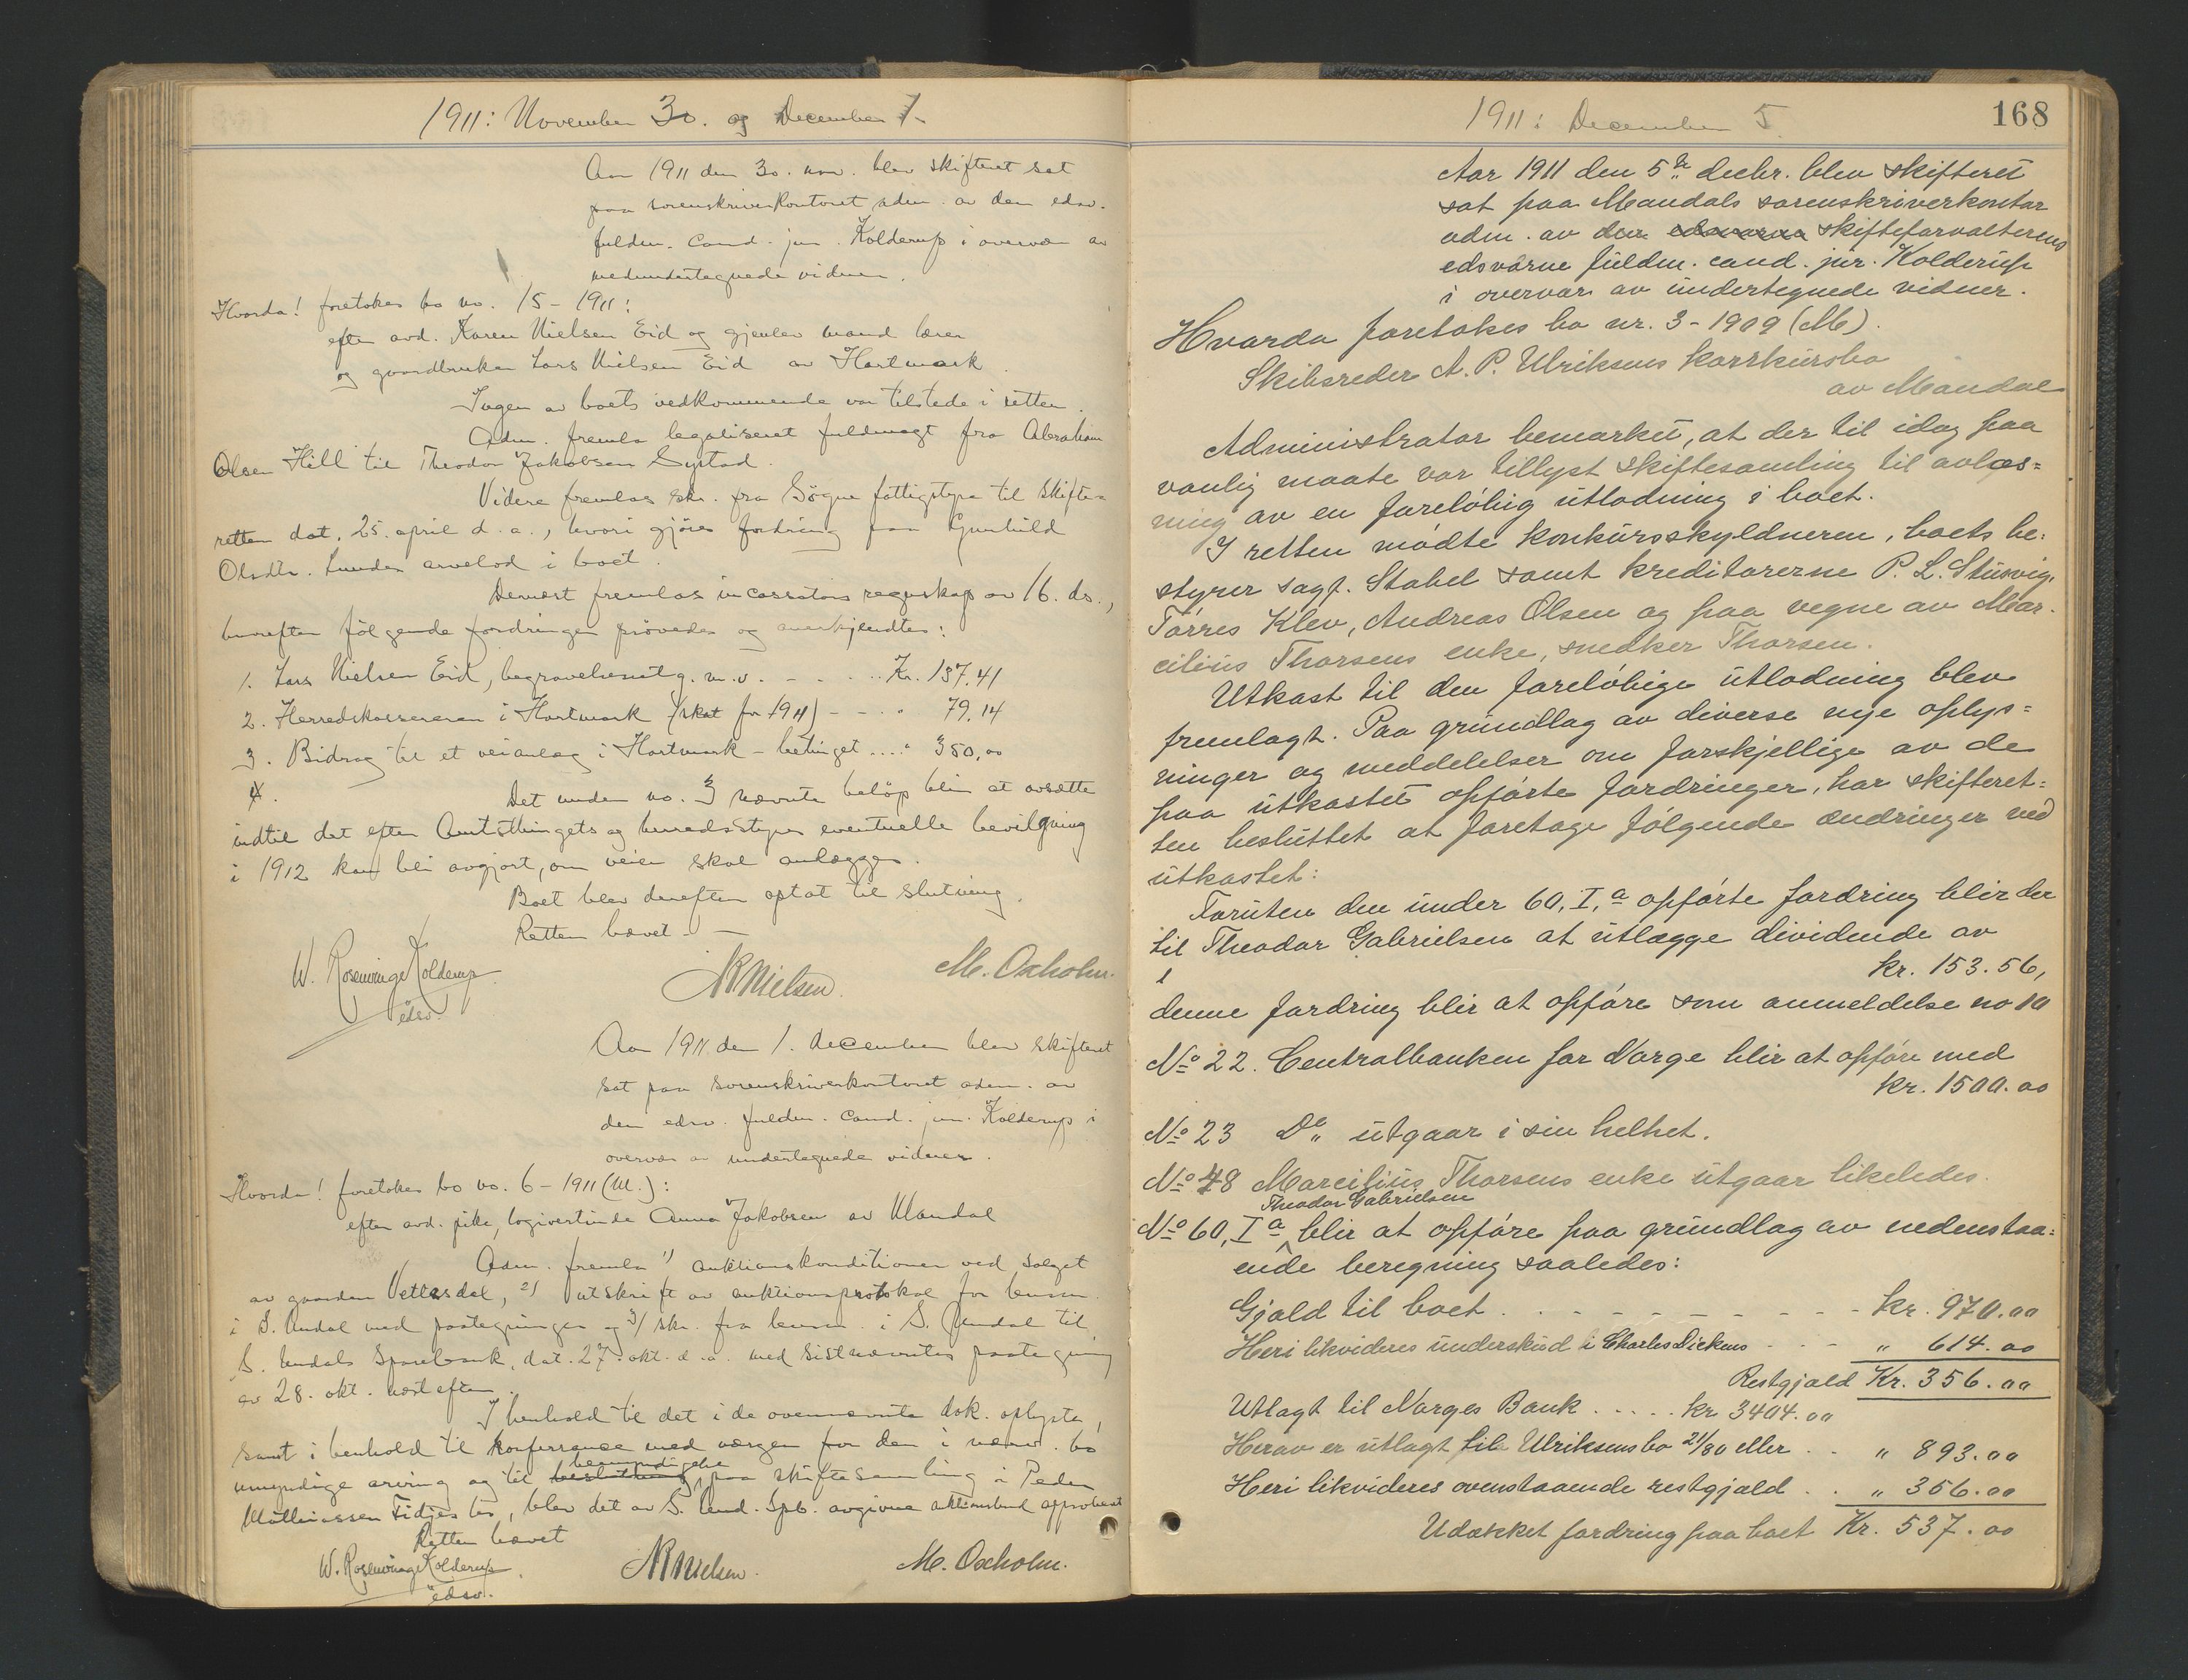 1911: November 30. og December 1.
Aar 1911 den 30. nov. blev skifteret sat
paa sorenskriverkontoret adm. av den edsv.
fuldm. cand. jur. Kolderup i overvær av
medundertegnede vidner.
Hvorda! foretokes bo no. 15 - 1911:
efter avd. Karen Nielsen Eid og gjenlev mand lærer
og gaardbruker Lars Nielsen Eid av Hartmark.
Ingen av boets vedkommende var tilstede i retten.
Adm. fremla legaliseret fuldmagt fra Abraham
Olsen Hill til Theodor Jakobsen Systad.
Videre fremlas skr. fra Søgne fattigstyre til skifte-
retten dat. 25. april d.a., hvori gjøres fordring paa Gunhild
Olsdtr. Lundes arvelod i boet.
Dernæst fremlas incassators regnskap av 16. ds.,
hvorefter følgende fordringer prøvedes og anerkjendtes:
1. Lars Nielsen Eid, begravelsesutg. m.v. - - . .. Kr. 137.41
2. Herredskassereren i Hartmark (skat for 1911) - - . " 79.14
3. Bidrag til et veianlæg i Hartmark - betinget .... " 350,00
4. Det under no. 3 nævnte beløp blir at avsætte
indtil det efter Amtsthingets og herredsstyres eventuelle bevilgning
i 1912 kan bli avgjort, om veien skal anlægges.
Boet blev derefter optat til slutning.
Retten hævet -
W. Rosenvinge Kolderup
edsv.
NRNielsen.
M. Oxholm.
Aar 1911 den 1. december blev skifteret
sat paa sorenskriverkontoret adm. av
den edsv. fuldm. cand. jur. Kolderup i
overvær av undertegnede vidner.
Hvorda! foretokes bo no. 6 - 1911 (M.):
efter avd. pike, logivertinde Anna Jakobsen av Mandal
Adm. fremla 1) auktionskonditioner ved salget
av gaarden Vetlesdal, 2) utskrift av auktionsprotokol for lensm.
i S. Undal med paategninger og 3) skr. fra lensm. i S. Undal til
S. Undals Sparebank, dat. 27. okt. d.a. med sistnævntes paategning
av 28. okt. næstefter.
I henhold til det i de ovennævnte dok. oplyste,
samt i henhold til konferranse med værgen for den i nærv. bo
bemyndigelse
umyndige arving og til beslutning paa skiftesamling i Peder
Mathiassen Tidjes bo, blev det av S. Und. Spb. avgivne auktionsbud approbert
Retten hævet
W. Rosenvinge Kolderup
edsv.
NRNielsen.
M. Oxholm.
1911: December 5.
168
Aar 1911 den 5te decbr. blev skifteret
sat paa Mandals sorenskriverkontor
adm. av den edsvorne skifteforvalterens
edsvorne fuldm. cand. jur. Kolderup
i overvær av undertegnede vidner.
Hvorda foretokes bo nr. 3 - 1909 (M).
Skibsreder A. P. Ulriksens konkursbo
av Mandal
Administrator bemerket, at der til idag paa
vanlig maate var tillyst skiftesamling til avlæs=
ning av en foreløbig utlodning i boet.
I retten mødte konkursskyldneren, boets be-
styrer sagf. Stabel samt kreditorerne P. L. Stusvig,
Tørres Klev, Andreas Olsen og paa vegne av Mar-
cilius Thorsens enke, snedker Thorsen.
Utkast til den foreløbige utlodning blev
fremlagt. Paa grundlag av diverse nye oplys=
ninger og meddelelser om forskjellige av de
paa utkastet opførte fordringer, har skifteret=
ten besluttet at foretage følgende ændringer ved
utkastet:
Foruten den under 60, I, a opførte fordring blir der
til Theodor Gabrielsen at utlægge dividende av
kr. 153.56,
denne fordring blir at opføre som anmeldelse no 10
No 22. Centralbanken for Norge blir at opføre med
kr. 1500.00
No 23 Do utgaar i sin helhet.
No 48 Marcilius Thorsens enke utgaar likeledes.
Theodor Gabrielsen
No 60, I a blir at opføre paa grundlag av nedenstaa=
ende beregning saaledes:
Gjæld til boet . . - - - - - - - kr. 970.00
Heri likvideres underskud i Charles Dickens - - - " 614.00
Restgjæld Kr. 356.00
Utlagt til Norges Bank ..... kr 3404.00
Herav er utlagt til Ulriksens bo 21/80 eller . . " 893.00
Heri likvideres ovenstaaende restgjæld . . " 356.00
Udækket fordring paa boet Kr. 537.00